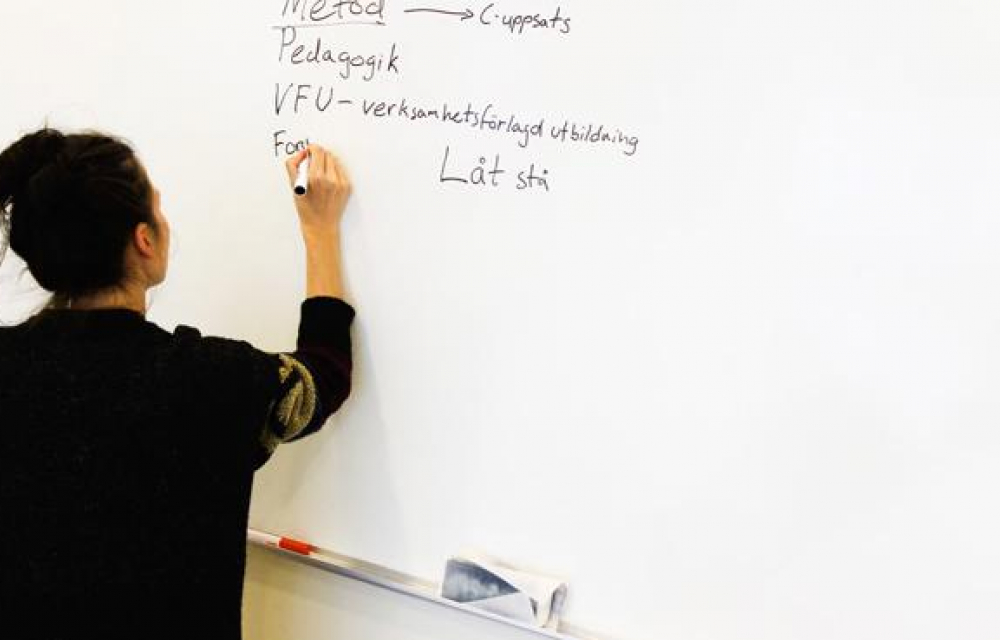 Metod → C-uppsats
Pedagogik
VFU - verksamhetsförlagd utbildning
Låt stå